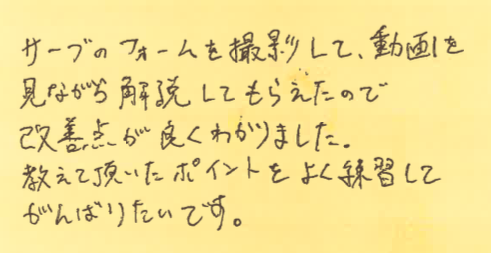 サーブのフォームを撮影して、動画を
見ながら解説してもらえたので
改善点が良くわかりました。
教えて頂いたポイントをよく練習して
がんばりたいです。